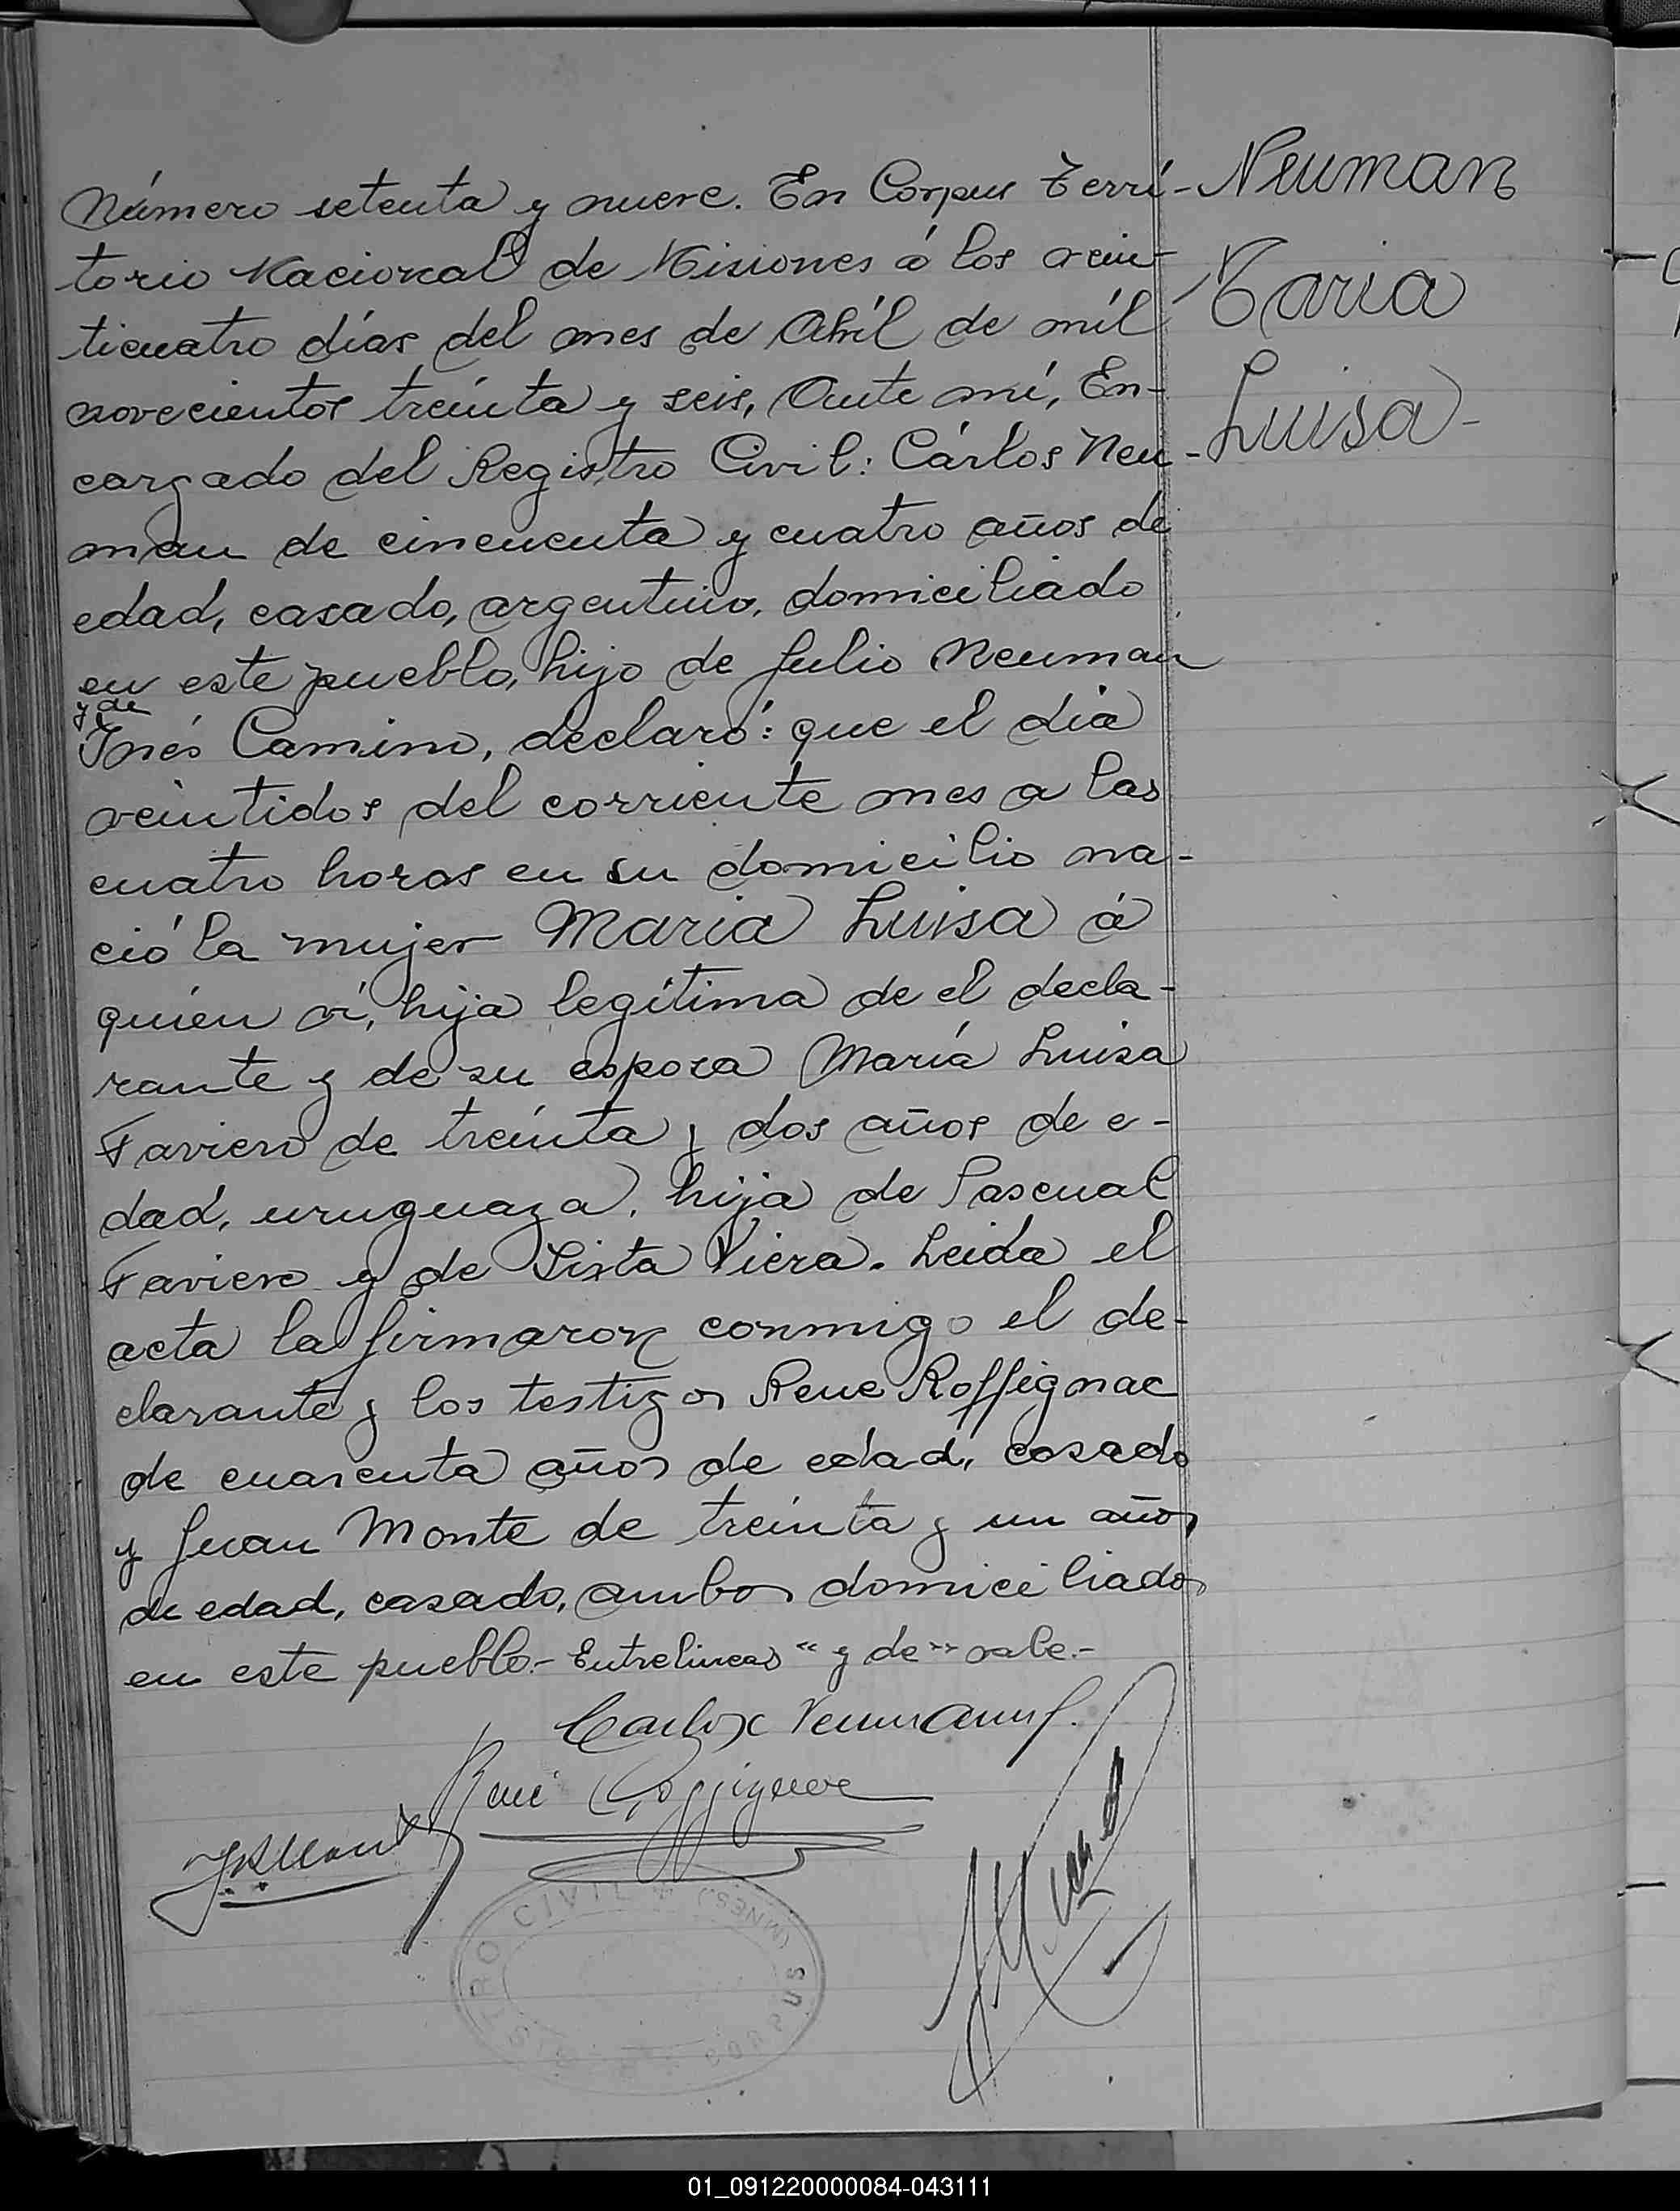 Número setenta y nueve. En Corpus Terri-
torio Nacional de Misiones á los vein-
ticuatro días del mes de Abril de mil
novecientos treinta y seis, Ante mí, En-
cargado del Registro Civil: Cárlos Neu-
man de cincuenta y cuatro años de
edad, casado, argentino, domiciliado
en este pueblo, hijo de Julio Neuman
y de
Inés Camino, declaró: que el día
veintidos del corriente mes a las
cuatro horas en su domicilio na-
ció la mujer Maria Luisa á
quien ví, hija legítima de el decla-
rante y de su esposa María Luisa
Faviero de treinta y dos años de e-
dad, uruguaya, hija de Pascual
Faviero y de Sixta Viera. Leida el
acta la firmaron conmigo el de-
clarante y los testigos Rene Roffignac
de cuarenta años de edad, casado
y Juan Monte de treinta y un años
de edad, casado, ambos domiciliados
en este pueblo.- Entrelineas "y de" vale.-
Neuman
Maria
Luisa-
Carlos Neumann
René Roffignac
CIVIL
01_091220000084-043111